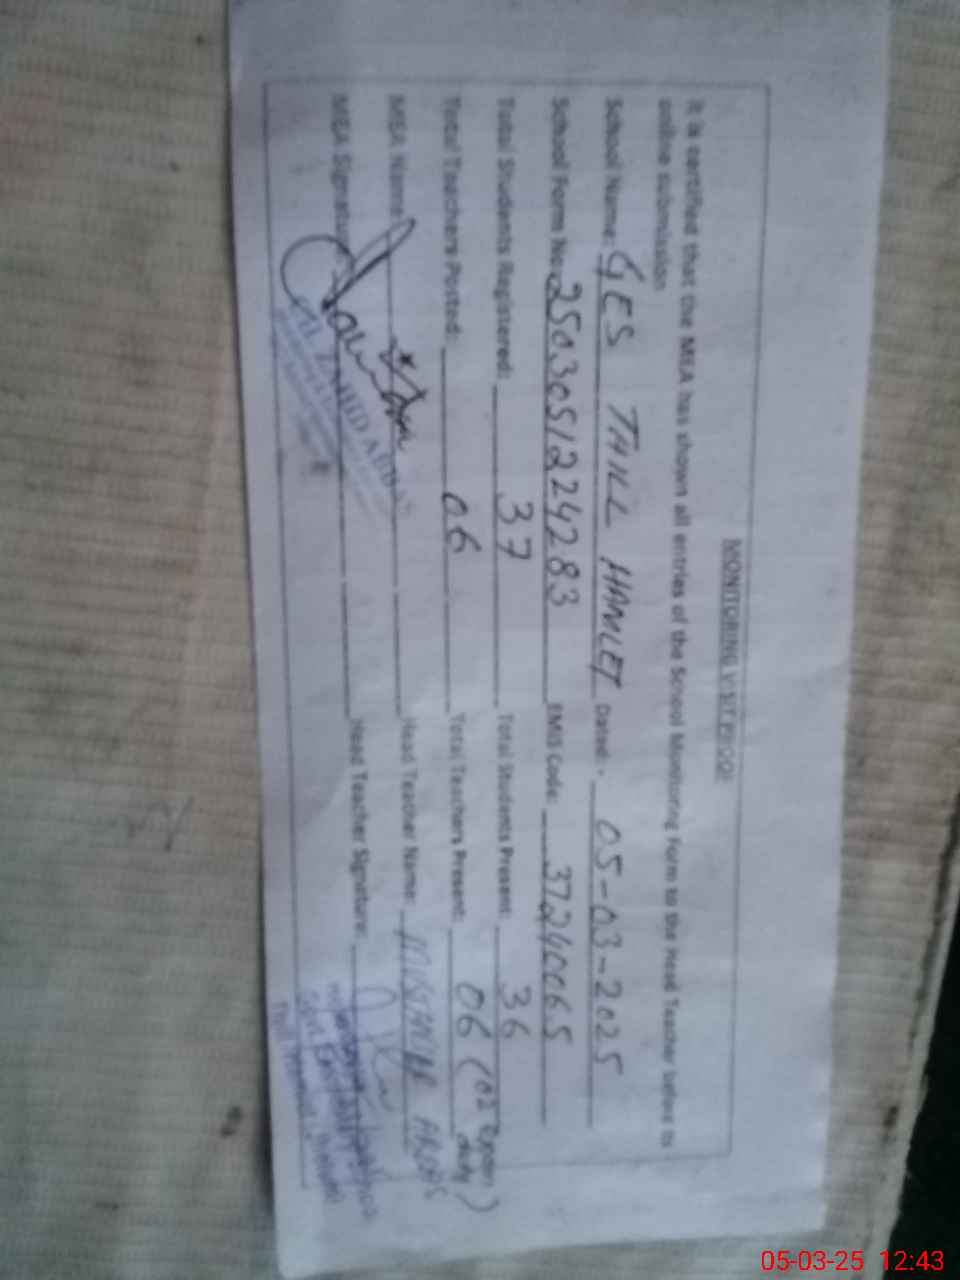 MONITORING VISIT PROOF
It is certified that the MEA has shown all entries of the School Monitoring Form to the Head Teacher before to
online submission
School Name: GES THILL HAMLET Dated:- 05-03-2025
School Form No: 2503051224283 EMIS Code: 37240065
Total Students Registered: 37 Total Students Present: 36
Total Teachers Posted: 06 Total Teachers Present: 06 (02 exam duty)
MEA Name: Head Teacher Name: ABBAS
MEA Signature: Head Teacher Signature:
ZAHID ABBAS
05-03-25 12:43